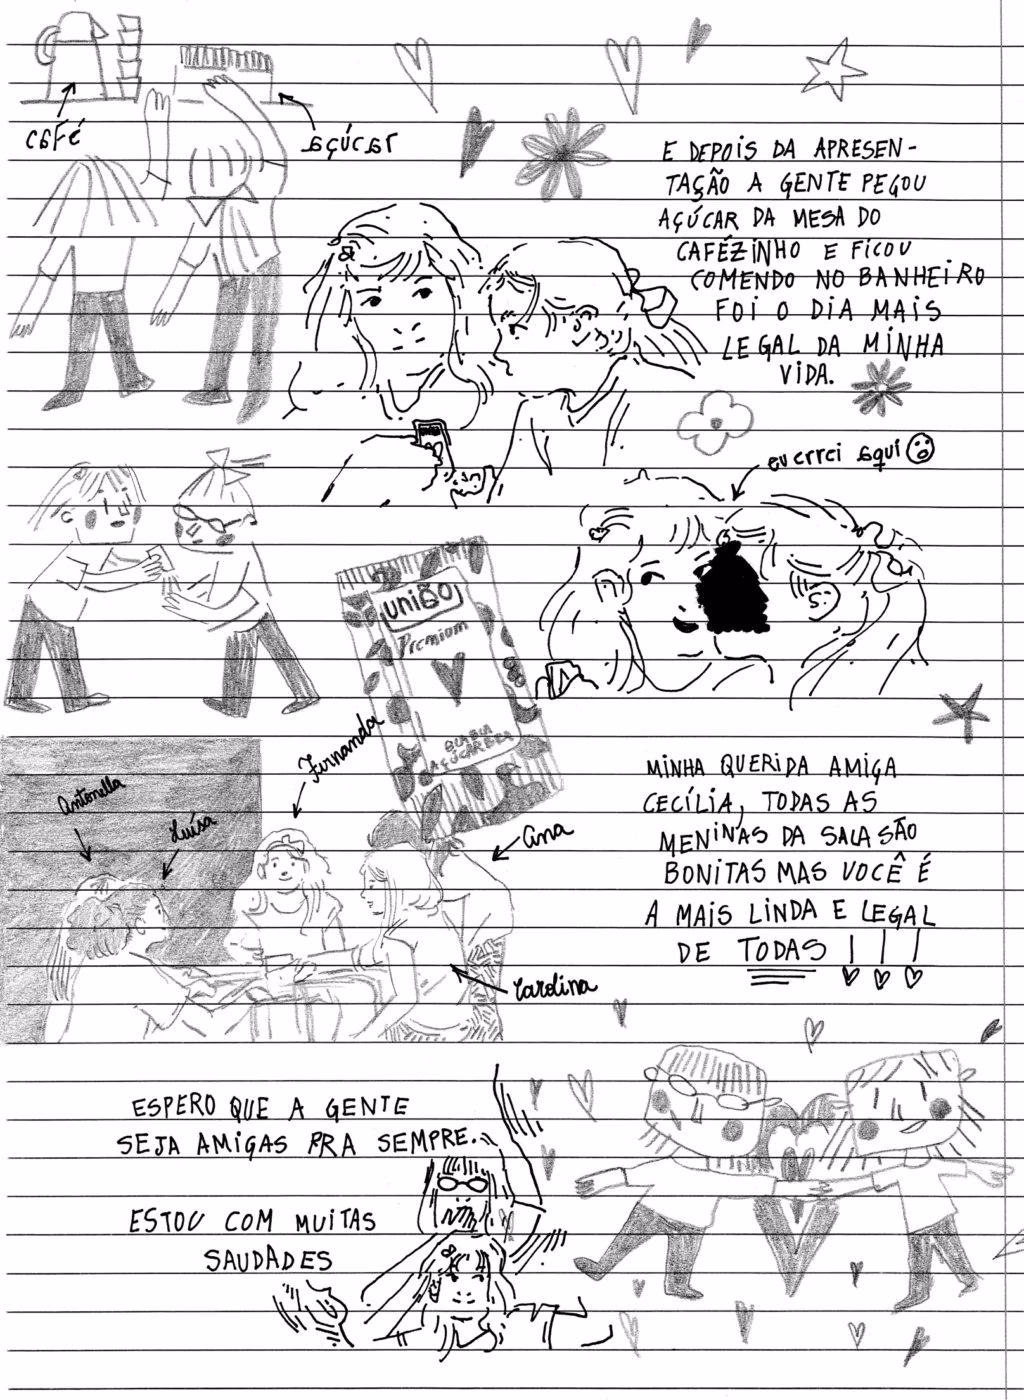 café
açúcar
E DEPOIS DA APRESEN-
TAÇÃO A GENTE PEGOU
AÇÚCAR DA MESA DO
CAFÉZINHO E FICOU
COMENDO NO BANHEIRO
FOI O DIA MAIS
LEGAL DA MINHA
VIDA.
eu errei aqui
União
Premium
BLA BLA
AÇÚCAR BLA
Antonella
Luísa
Fernanda
Ana
Carolina
MINHA QUERIDA AMIGA
CECÍLIA, TODAS AS
MENINAS DA SALA SÃO
BONITAS MAS VOCÊ É
A MAIS LINDA E LEGAL
DE TODAS !!!
ESPERO QUE A GENTE
SEJA AMIGAS PRA SEMPRE.
ESTOU COM MUITAS
SAUDADES